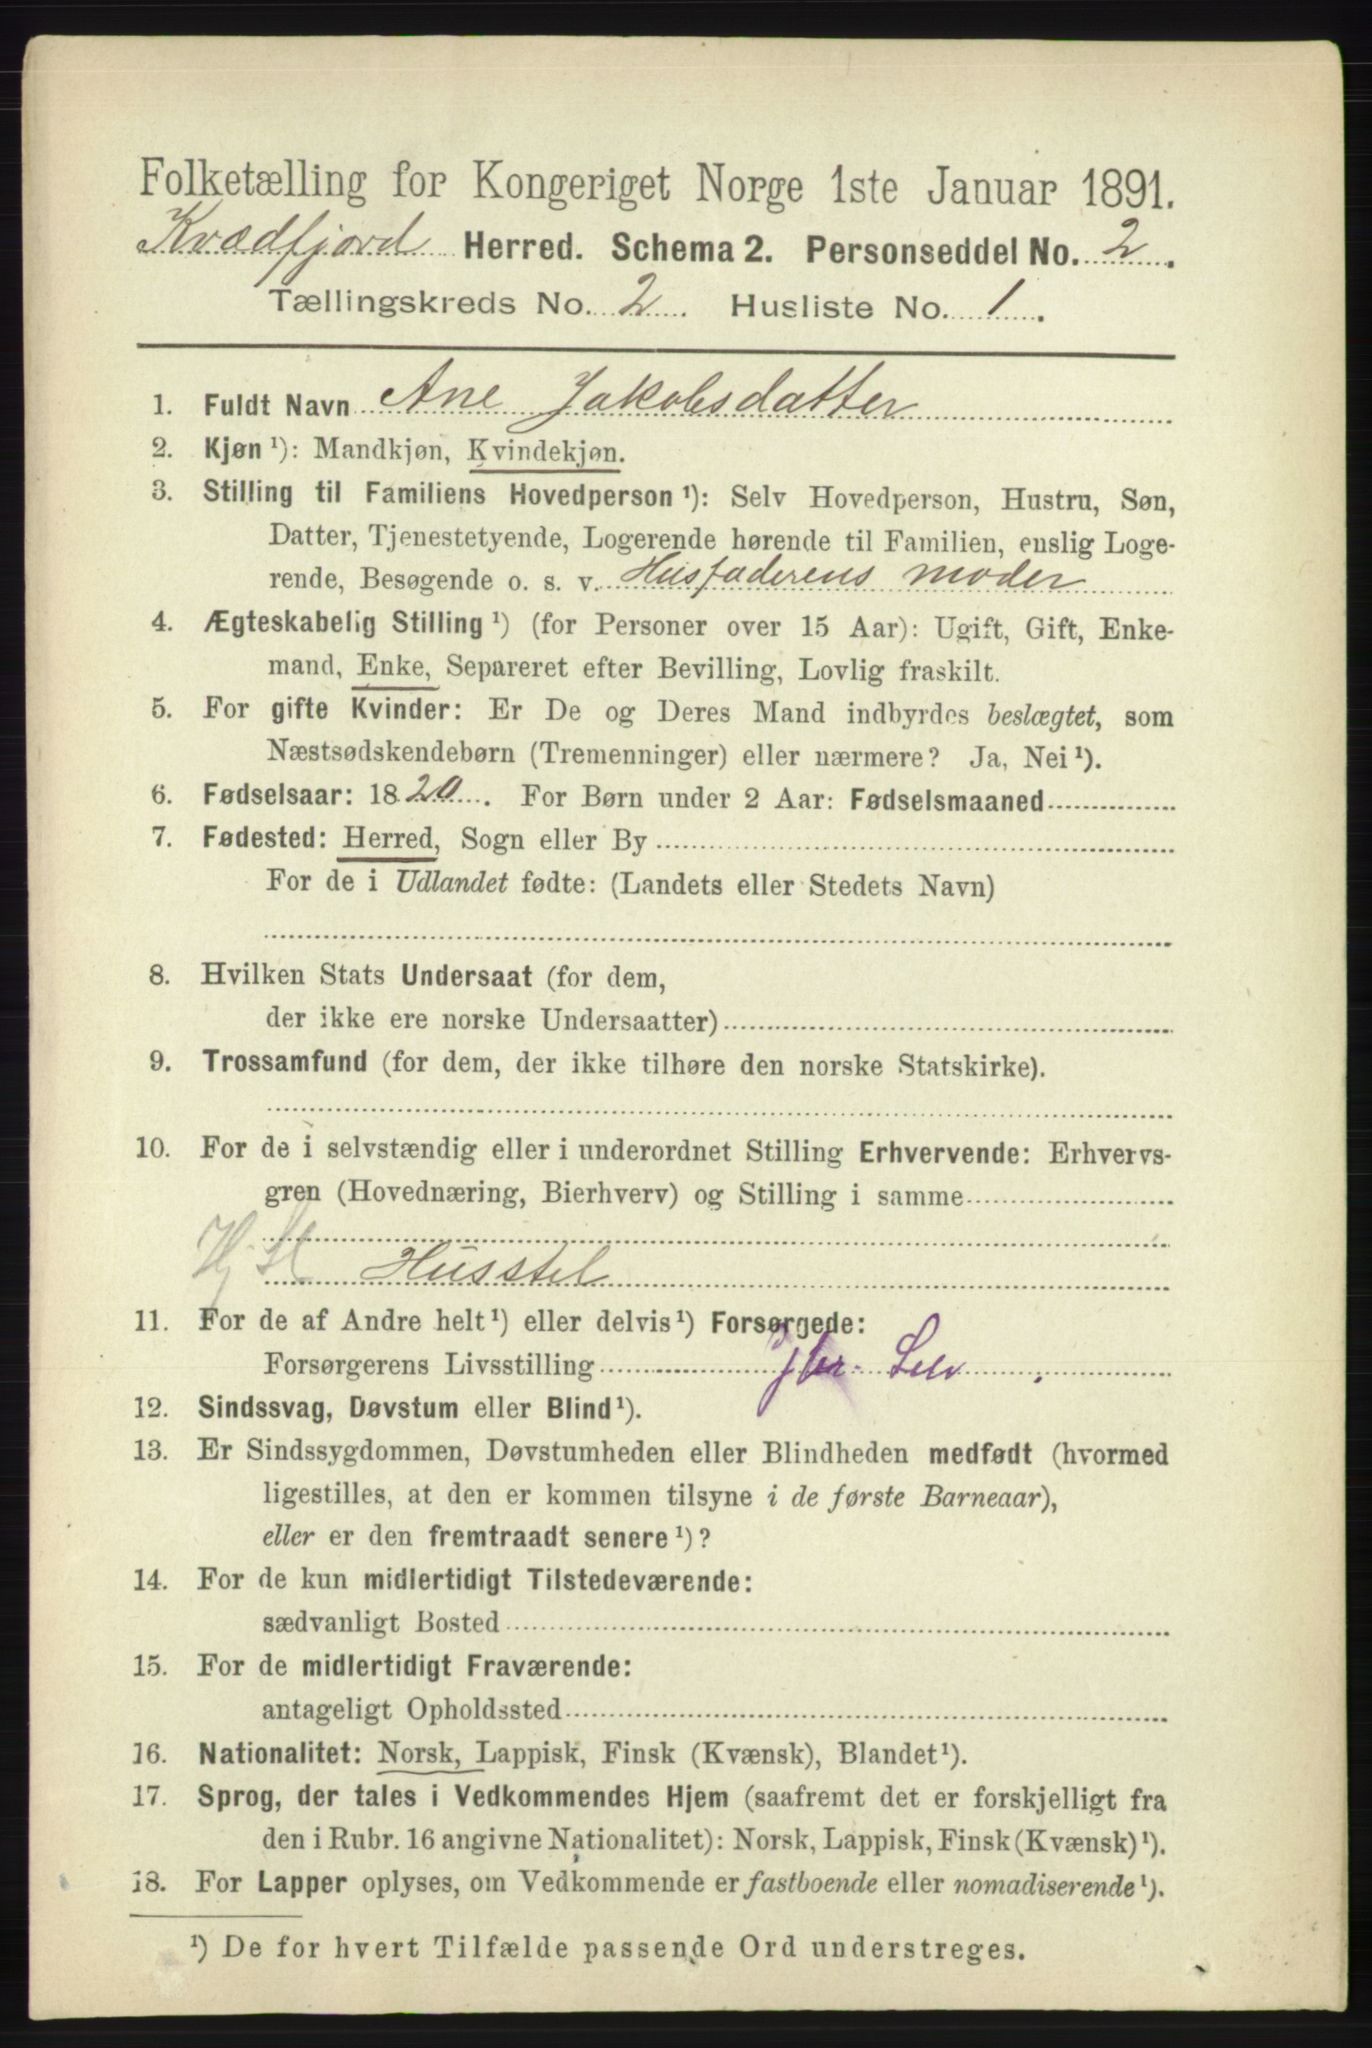 Folketælling for Kongeriget Norge 1ste Januar 1891.
Kvædfjord Herred. Schema 2. Personseddel No. 2.
Tællingskreds No. 2. Husliste No. 1.
1. Fuldt Navn Ane Jakobsdatter
2. Kjøn ¹): Mandkjøn, Kvindekjøn.
3. Stilling til Familiens Hovedperson ¹): Selv Hovedperson, Hustru, Søn,
Datter, Tjenestetyende, Logerende hørende til Familien, enslig Loge-
rende, Besøgende o. s. v. Husfaderens moder
4. Ægteskabelig Stilling ¹) (for Personer over 15 Aar): Ugift, Gift, Enke-
mand, Enke, Separeret efter Bevilling, Lovlig fraskilt.
5. For gifte Kvinder: Er De og Deres Mand indbyrdes beslægtet, som
Næstsødskendebørn (Tremenninger) eller nærmere? Ja, Nei ¹).
6. Fødselsaar: 1820. For Børn under 2 Aar: Fødselsmaaned
7. Fødested: Herred, Sogn eller By
For de i Udlandet fødte: (Landets eller Stedets Navn)
8. Hvilken Stats Undersaat (for dem,
der ikke ere norske Undersaatter)
9. Trossamfund (for dem, der ikke tilhøre den norske Statskirke).
10. For de i selvstændig eller i underordnet Stilling Erhvervende: Erhvervs-
gren (Hovednæring, Bierhverv) og Stilling i samme
Husstel
11. For de af Andre helt ¹) eller delvis ¹) Forsørgede:
Forsørgerens Livsstilling Selv
12. Sindssvag, Døvstum eller Blind ¹).
13. Er Sindssygdommen, Døvstumheden eller Blindheden medfødt (hvormed
ligestilles, at den er kommen tilsyne i de første Barneaar),
eller er den fremtraadt senere ¹)?
14. For de kun midlertidigt Tilstedeværende:
sædvanligt Bosted
15. For de midlertidigt Fraværende:
antageligt Opholdssted
16. Nationalitet: Norsk, Lappisk, Finsk (Kvænsk), Blandet ¹).
17. Sprog, der tales i Vedkommendes Hjem (saafremt det er forskjelligt fra
den i Rubr. 16 angivne Nationalitet): Norsk, Lappisk, Finsk (Kvænsk) ¹).
18. For Lapper oplyses, om Vedkommende er fastboende eller nomadiserende ¹).
¹) De for hvert Tilfælde passende Ord understreges.